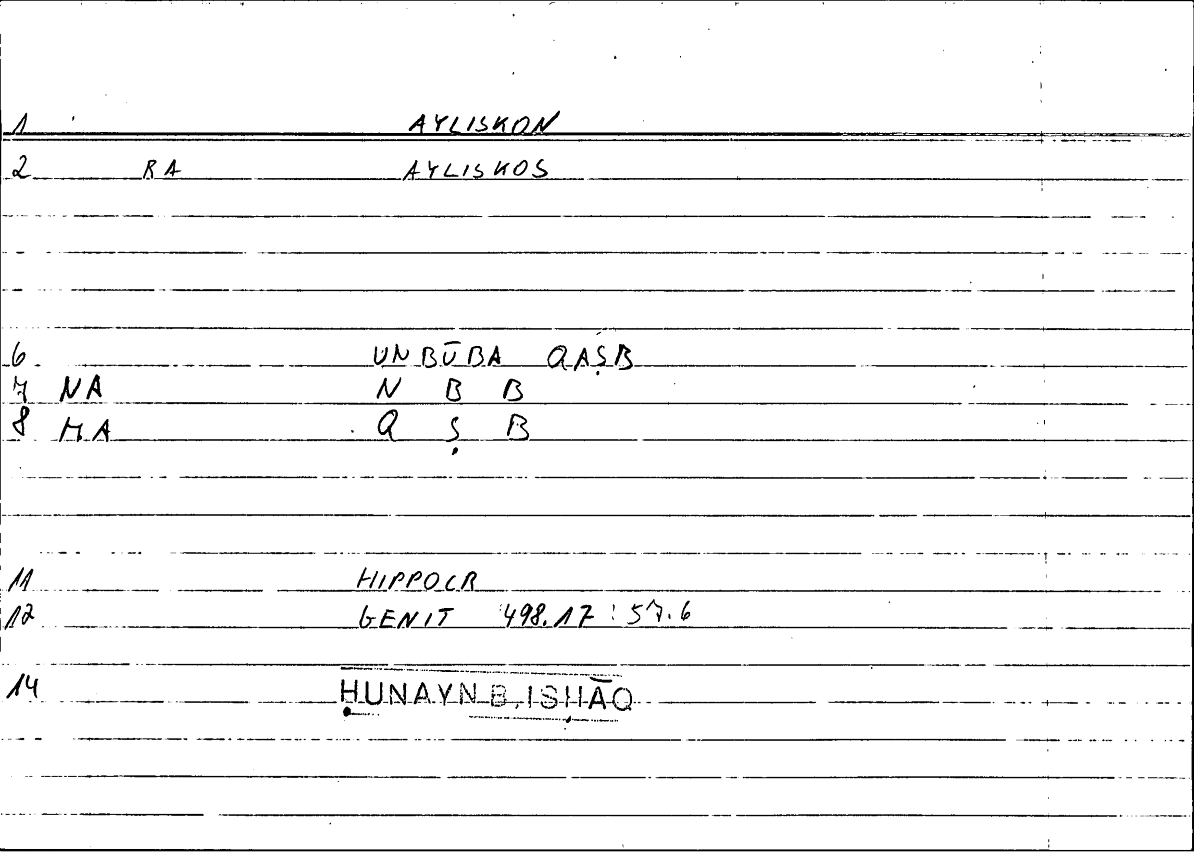 1 AYLISKON
2 RA AYLISKOS
6 UNBŪBA QAṢB
7 NA N B B
8 MA Q Ṣ B
11 HIPPOCR
12 GENIT 498.17 : 57.6
14 ḤUNAYN B. ISḤĀQ